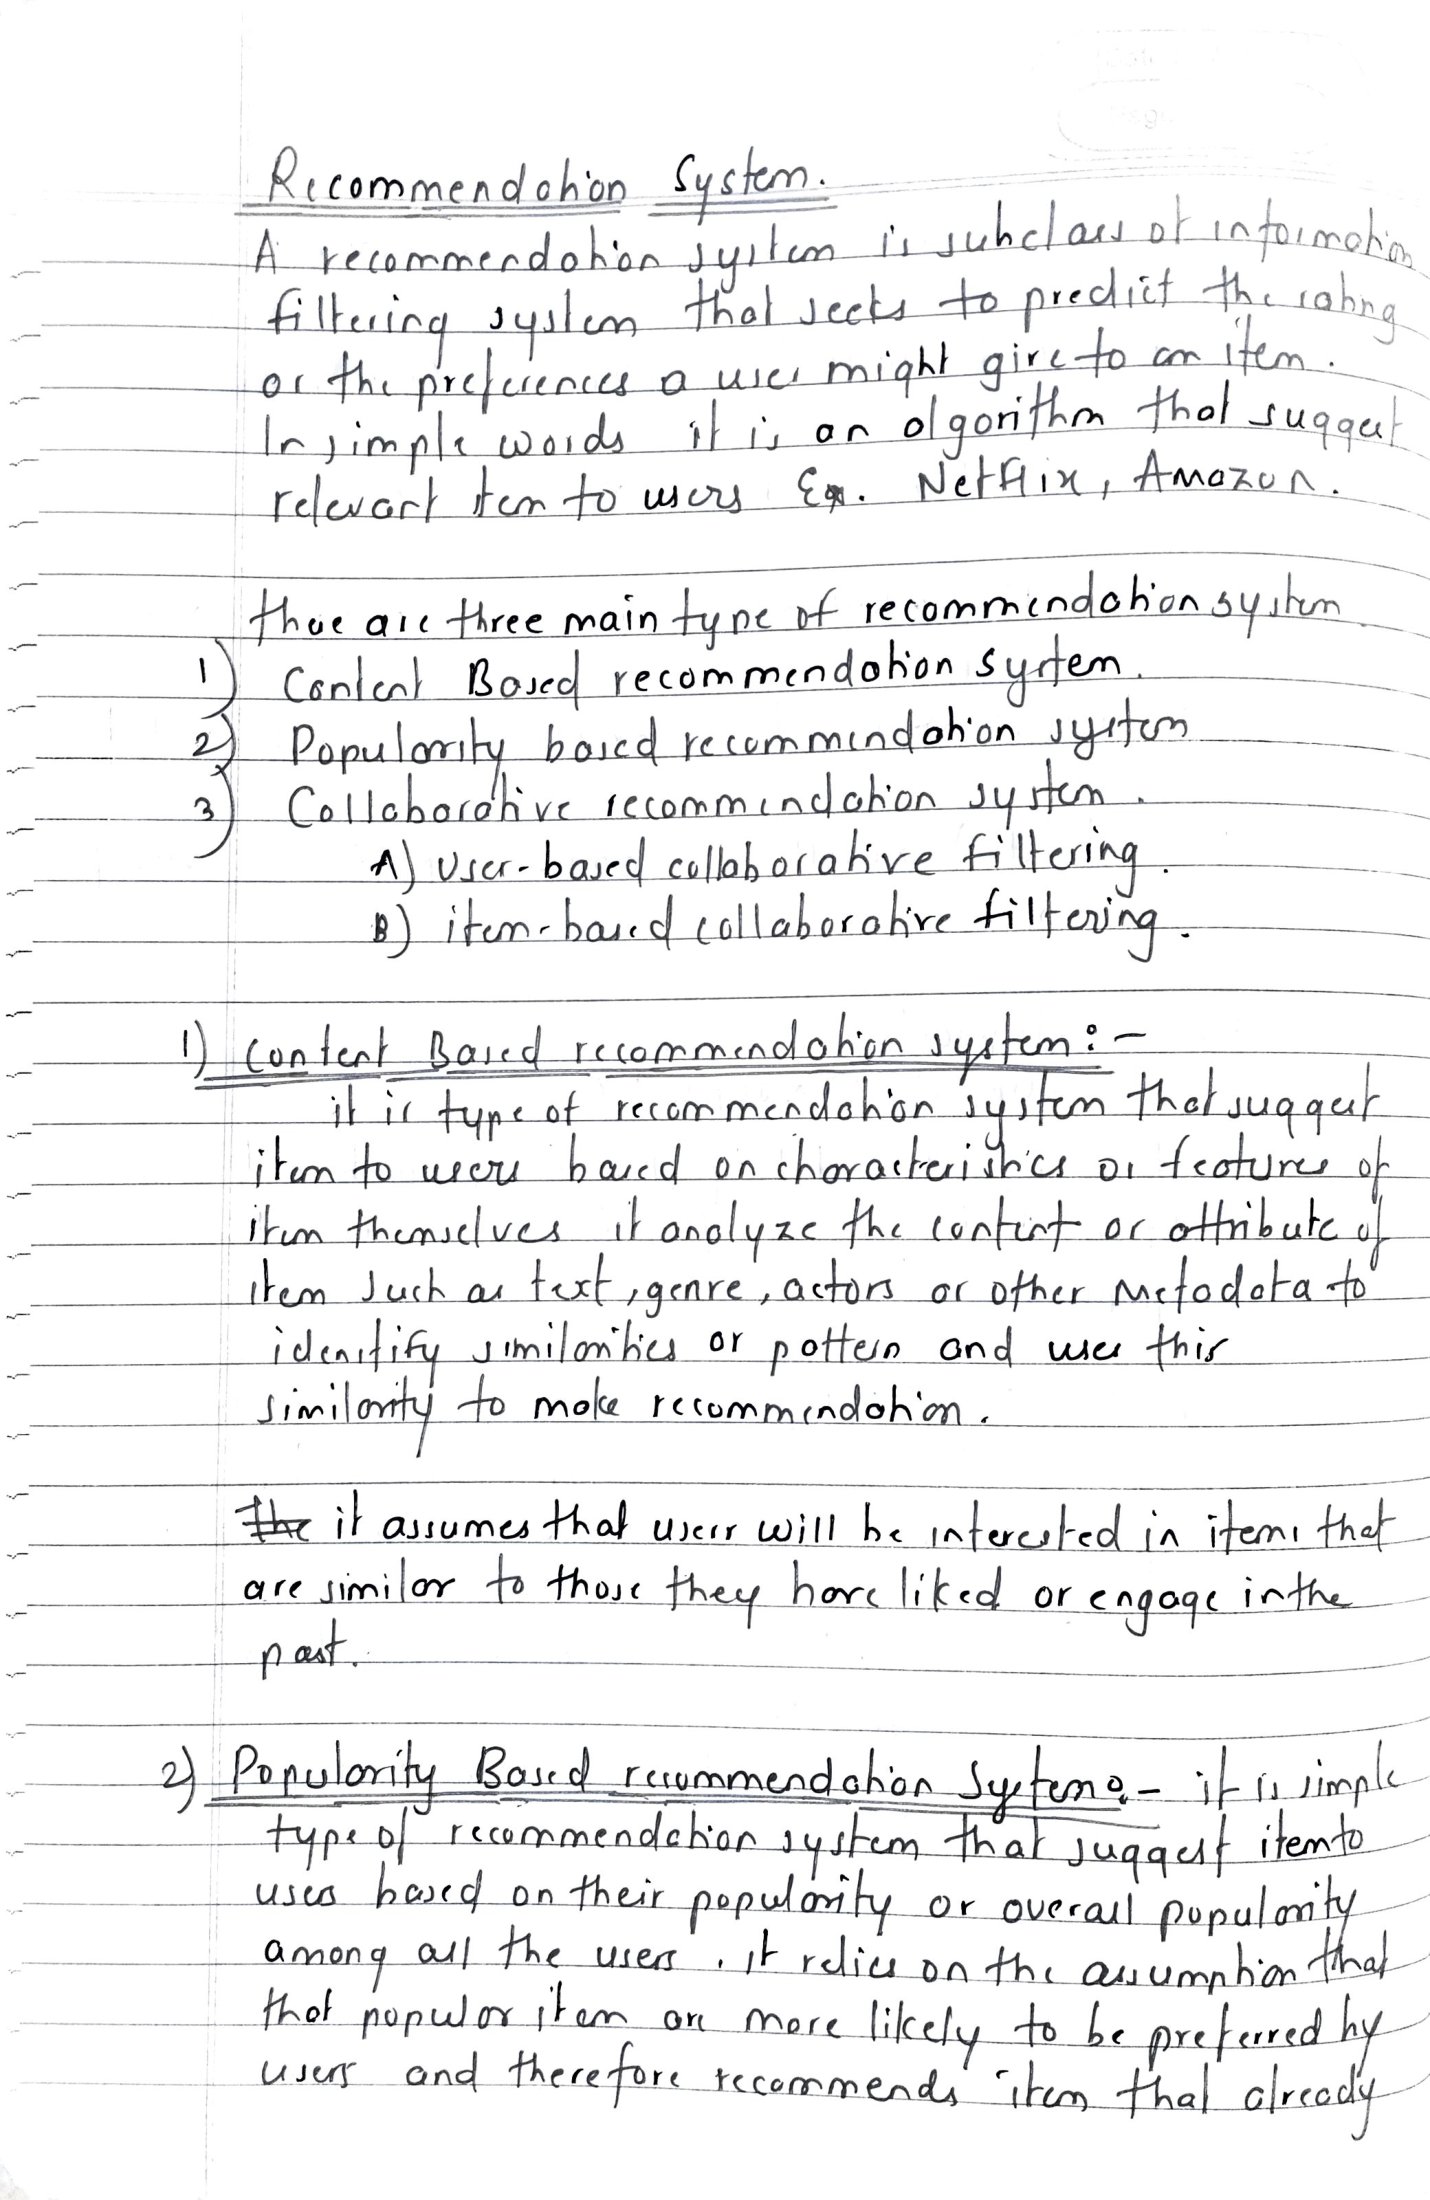 Recommendation System.
A recommendation system is subclass of information
filtering system that seeks to predict the rating
or the preferences a user might give to an item.
In simple words it is an algorithm that suggest
relevant item to users Ex. Netflix, Amazon.
there are three main type of recommendation system
1) Content Based recommendation system.
2) Popularity based recommendation system
3) Collaborative recommendation system.
A) User-based collaborative filtering.
B) item-based collaborative filtering.
1) Content Based recommendation system:-
it is type of recommendation system that suggest
item to users based on characteristics or features of
item themselves it analyze the content or attribute of
item such as text, genre, actors or other metadata to
idenitify similarities or pattern and uses this
similarity to make recommendation.
the it assumes that users will be interested in items that
are similar to those they have liked or engage in the
past.
2) Popularity Based recommendation System:- it is simple
type of recommendation system that suggest item to
users based on their popularity or overall popularity
among all the users. it relies on the assumption that
that popular item are more likely to be preferred by
users and therefore recommends item that already